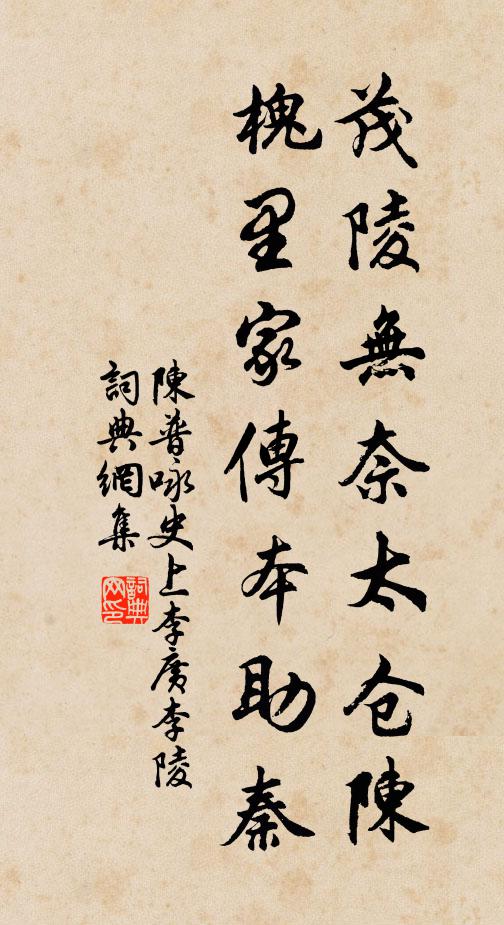 茂陵無奈太仓陳
槐里家傳本助秦
陳普咏史上李廣李陵
詞典網集
詞典网印